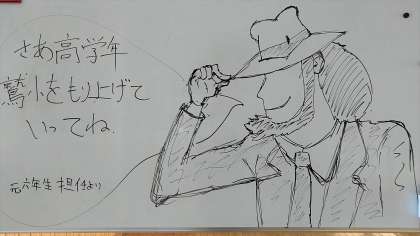 さあ高学年
鷲小をもり上げて
いってね.
元六年生 担任より